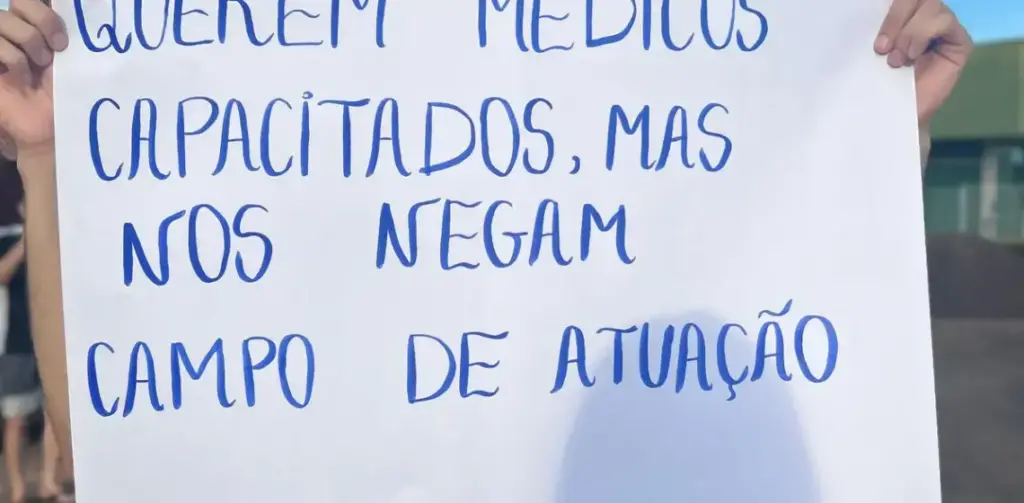 QUEREM MÉDICOS
CAPACITADOS, MAS
NOS NEGAM
CAMPO DE ATUAÇÃO